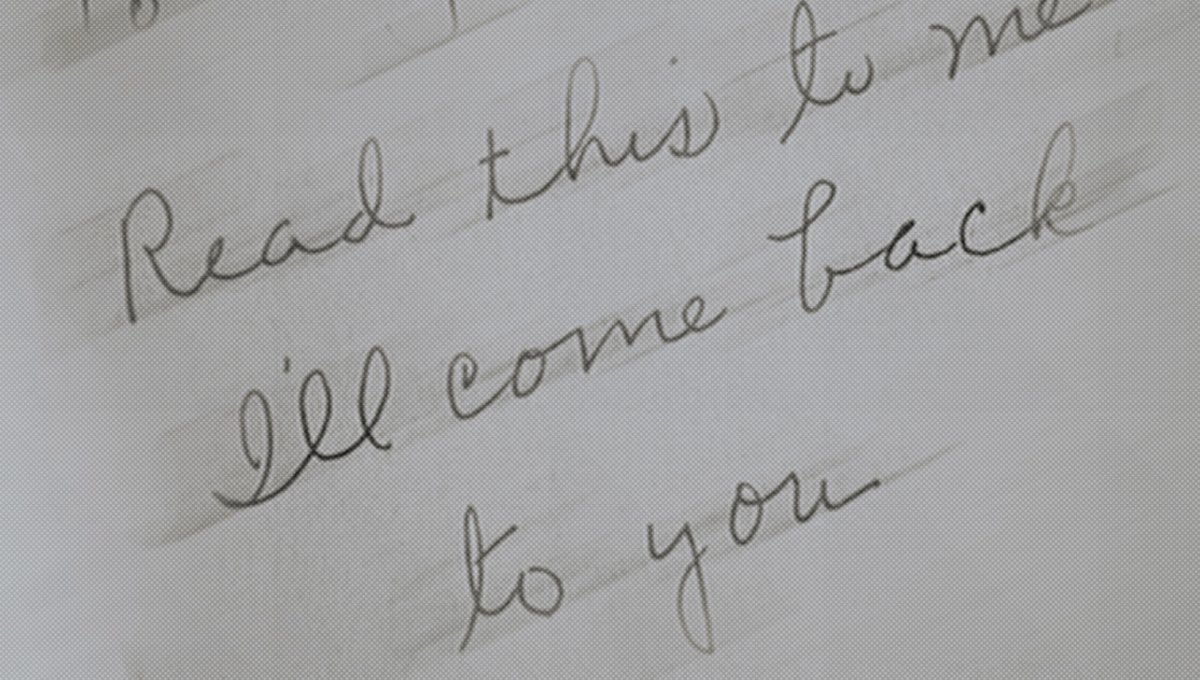 Read this to me
I'll come back
to you